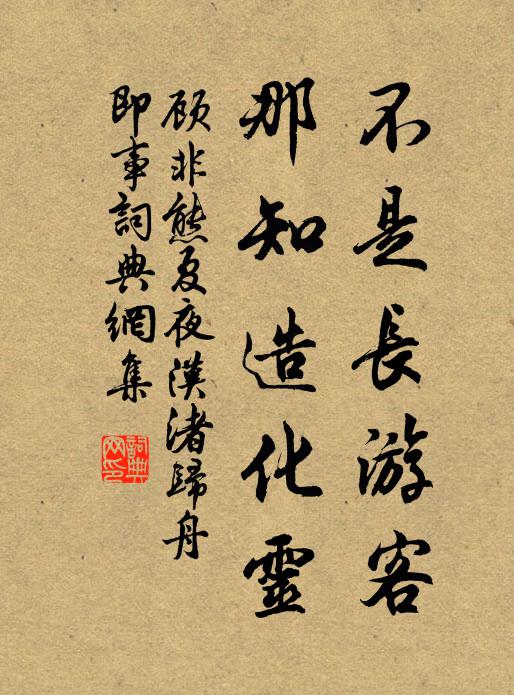 不是長游客
那知造化靈
顾非熊夏夜漢渚歸舟
即事詞典網集
詞典
网印